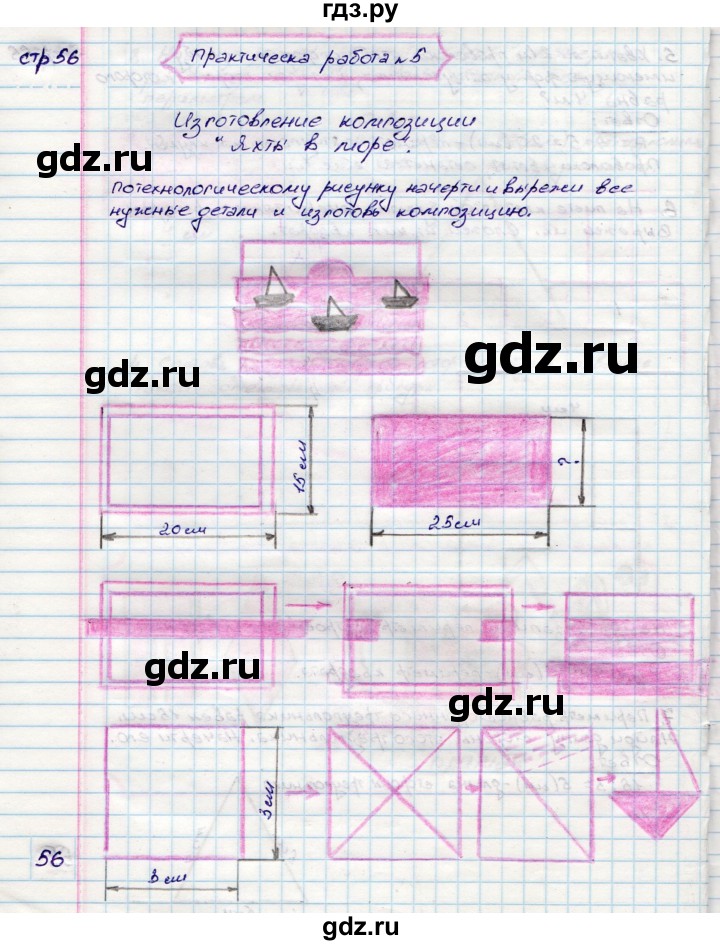 гдз.ру
стр 56
Практическа работа №5
Изготовление композиции
"Яхты в море".
По технологическому рисунку начерти и вырежи все
нужные детали и изготовь композицию.
gdz.ru
gdz.ru
15 см
?
20 см
25 см
gdz.ru
gdz.ru
3 см
56
3 см
gdz.ru
gdz.ru